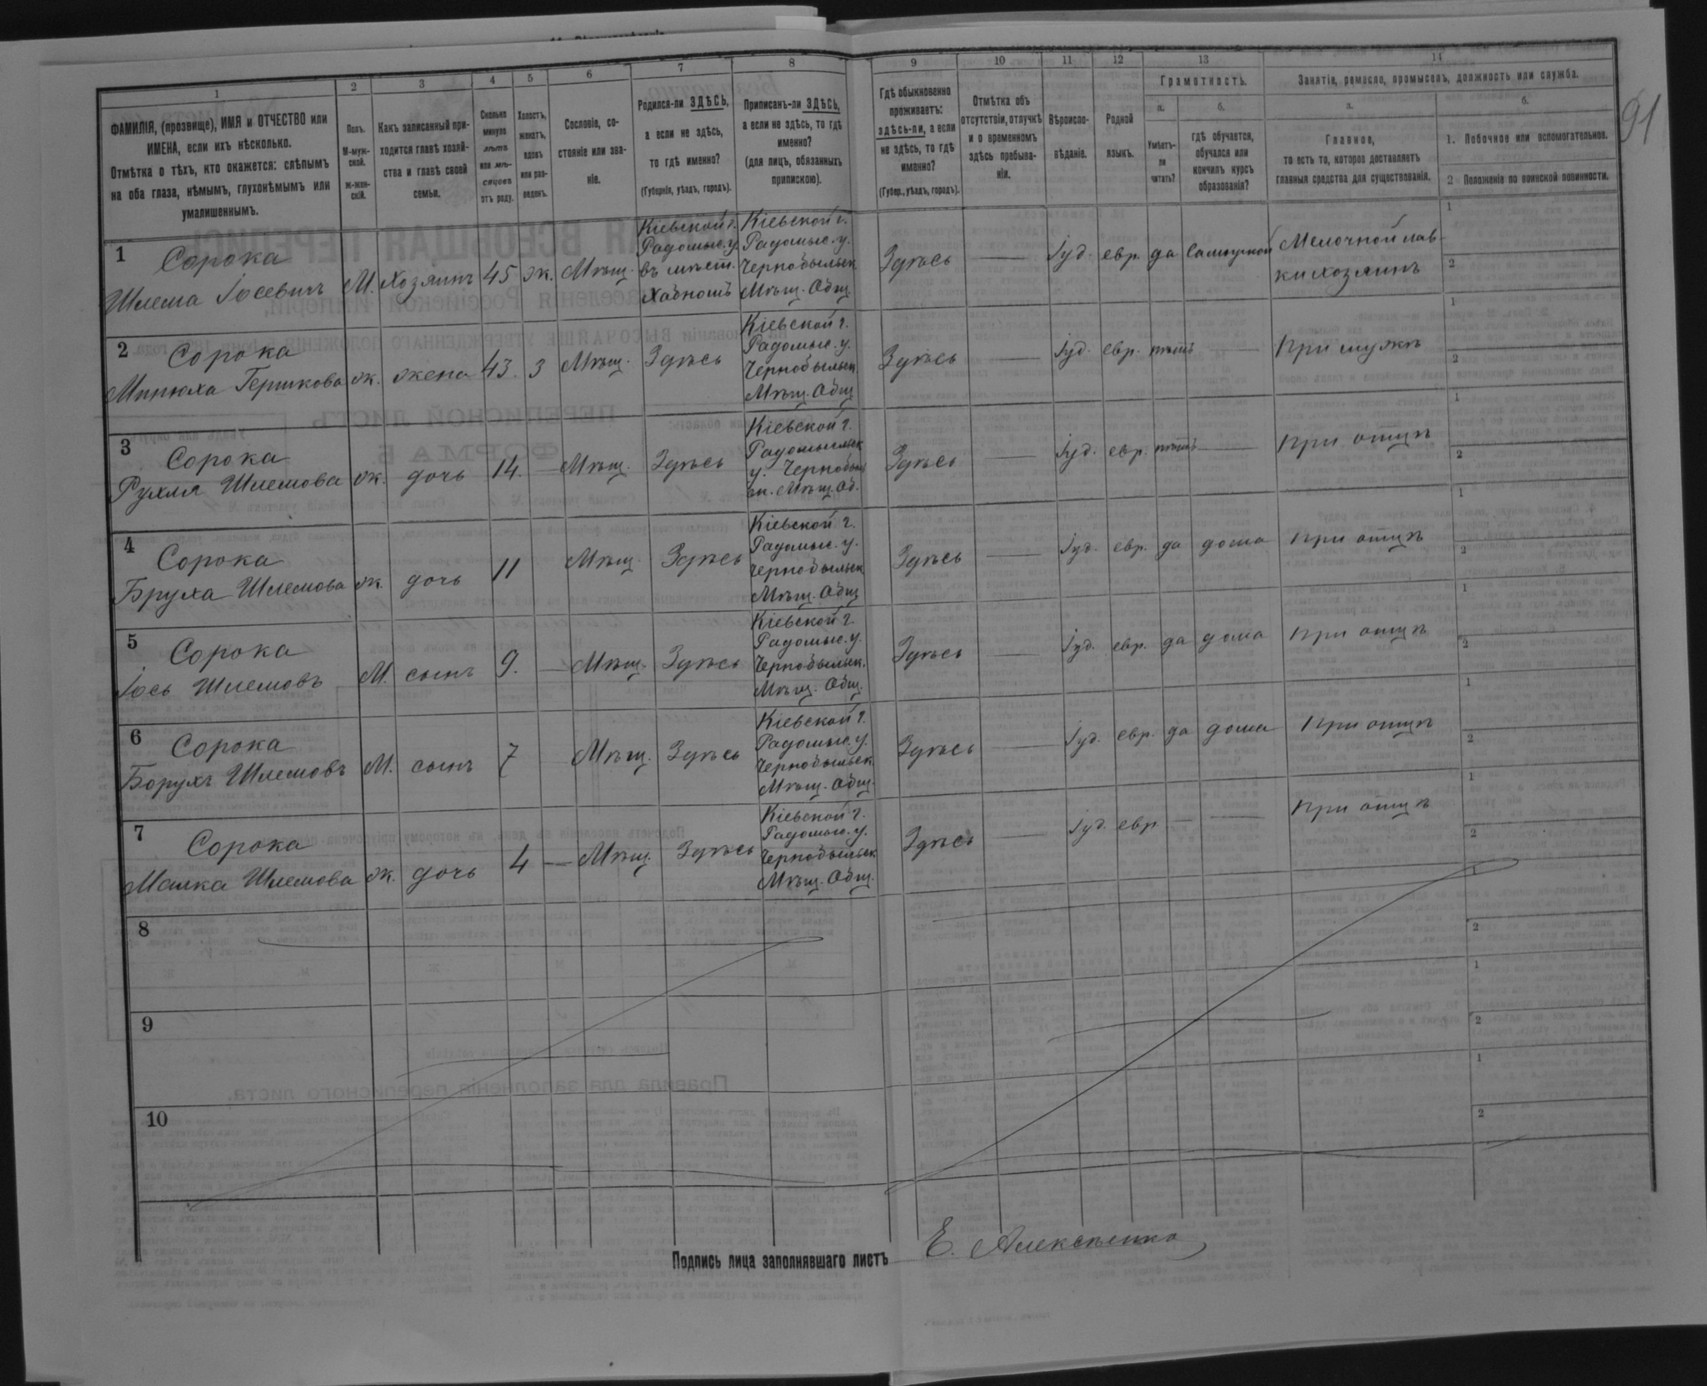 1 2 3 4 5 6 7 8 9 10 11 12 13 14
ФАМИЛІЯ, (прозвище), ИМЯ и ОТЧЕСТВО или
ИМЕНА, если ихъ нѣсколько.
Отмѣтка о тѣхъ, кто окажется: слѣпымъ
на оба глаза, нѣмымъ, глухонѣмымъ или
умалишеннымъ.
Полъ.
М-муж-
ской.
Ж-жен-
скій.
Какъ записанный при-
ходится главѣ хозяй-
ства и главѣ своей
семьи.
Сколько
минуло
лѣтъ
или мѣ-
сяцевъ
отъ роду.
Холостъ,
женатъ,
вдовъ
или раз-
веденъ.
Сословіе, со-
стояніе или зва-
ніе.
Родился-ли ЗДѢСЬ,
а если не здѣсь,
то гдѣ именно?
(Губернія, уѣздъ, городъ).
Приписанъ-ли ЗДѢСЬ,
а если не здѣсь, то гдѣ
именно?
(для лицъ, обязанныхъ
припискою).
Гдѣ обыкновенно
проживаетъ:
здѣсь-ли, а если
не здѣсь, то гдѣ
именно?
(Губер., уѣздъ, городъ).
Отмѣтка объ
отсутствіи, отлучкѣ
и о временномъ
здѣсь пребыва-
ніи.
Вѣроиспо-
вѣданіе.
Родной
языкъ.
Грамотность.
а.
Умѣетъ-
ли
читать?
б.
гдѣ обучается,
обучался или
кончилъ курсъ
образованія?
Занятіе, ремесло, промыселъ, должность или служба.
а.
Главное,
то есть то, которое доставляетъ
главныя средства для существованія.
б.
1. Побочное или вспомогательное.
2 Положеніе по воинской повинности.
91
1 Сорока
Шлема Іосевичъ М. Хозяинъ 45 ж. Мѣщ.
Кіевской г.
Радомыс. у.
въ мѣст.
Хабномъ
Кіевской г.
Радомыс. у.
Чернобыльск
Мѣщ. Общ
Здѣсь — Іуд. евр. да
Мелочной лав-
ки хозяинъ
1
2
2 Сорока
Гершкова ж. жена 43 з Мѣщ. Здѣсь
Кіевской г.
Радомыс. у.
Чернобыльск
Мѣщ. Общ
Здѣсь — Іуд. евр. нѣтъ — При мужѣ
1
2
3 Сорока
Рухля Шлемова ж. дочь 14. — Мѣщ. Здѣсь
Кіевской г.
Радомысльск
у. Чернобыль
ск. Мѣщ. Об.
Здѣсь — Іуд. евр. нѣтъ — При отцѣ
1
2
4 Сорока
Бруха Шлемова ж. дочь 11 Мѣщ. Здѣсь
Кіевской г.
Радомыс. у.
Чернобыльск
Мѣщ. Общ
Здѣсь — Іуд. евр. да дома При отцѣ
1
2
5 Сорока
Іось Шлемовъ М. сынъ 9. — Мѣщ. Здѣсь
Кіевской г.
Радомыс. у.
Чернобыльск.
Мѣщ. Общ.
Здѣсь — Іуд. евр. да дома При отцѣ
1
2
6 Сорока
Борухъ Шлемовъ М. сынъ 7 Мѣщ. Здѣсь
Кіевской г.
Радомыс. у.
Чернобыльск.
Мѣщ. Общ.
Здѣсь — Іуд. евр. да дома При отцѣ
1
2
7 Сорока
Малка Шлемова ж. дочь 4 — Мѣщ. Здѣсь
Кіевской г.
Радомыс. у.
Чернобыльск
Мѣщ. Общ.
Здѣсь — Іуд. евр — — При отцѣ
1
2
8
1
2
9
1
2
10
1
2
Подпись лица заполнявшаго листъ Е. Алексѣенко